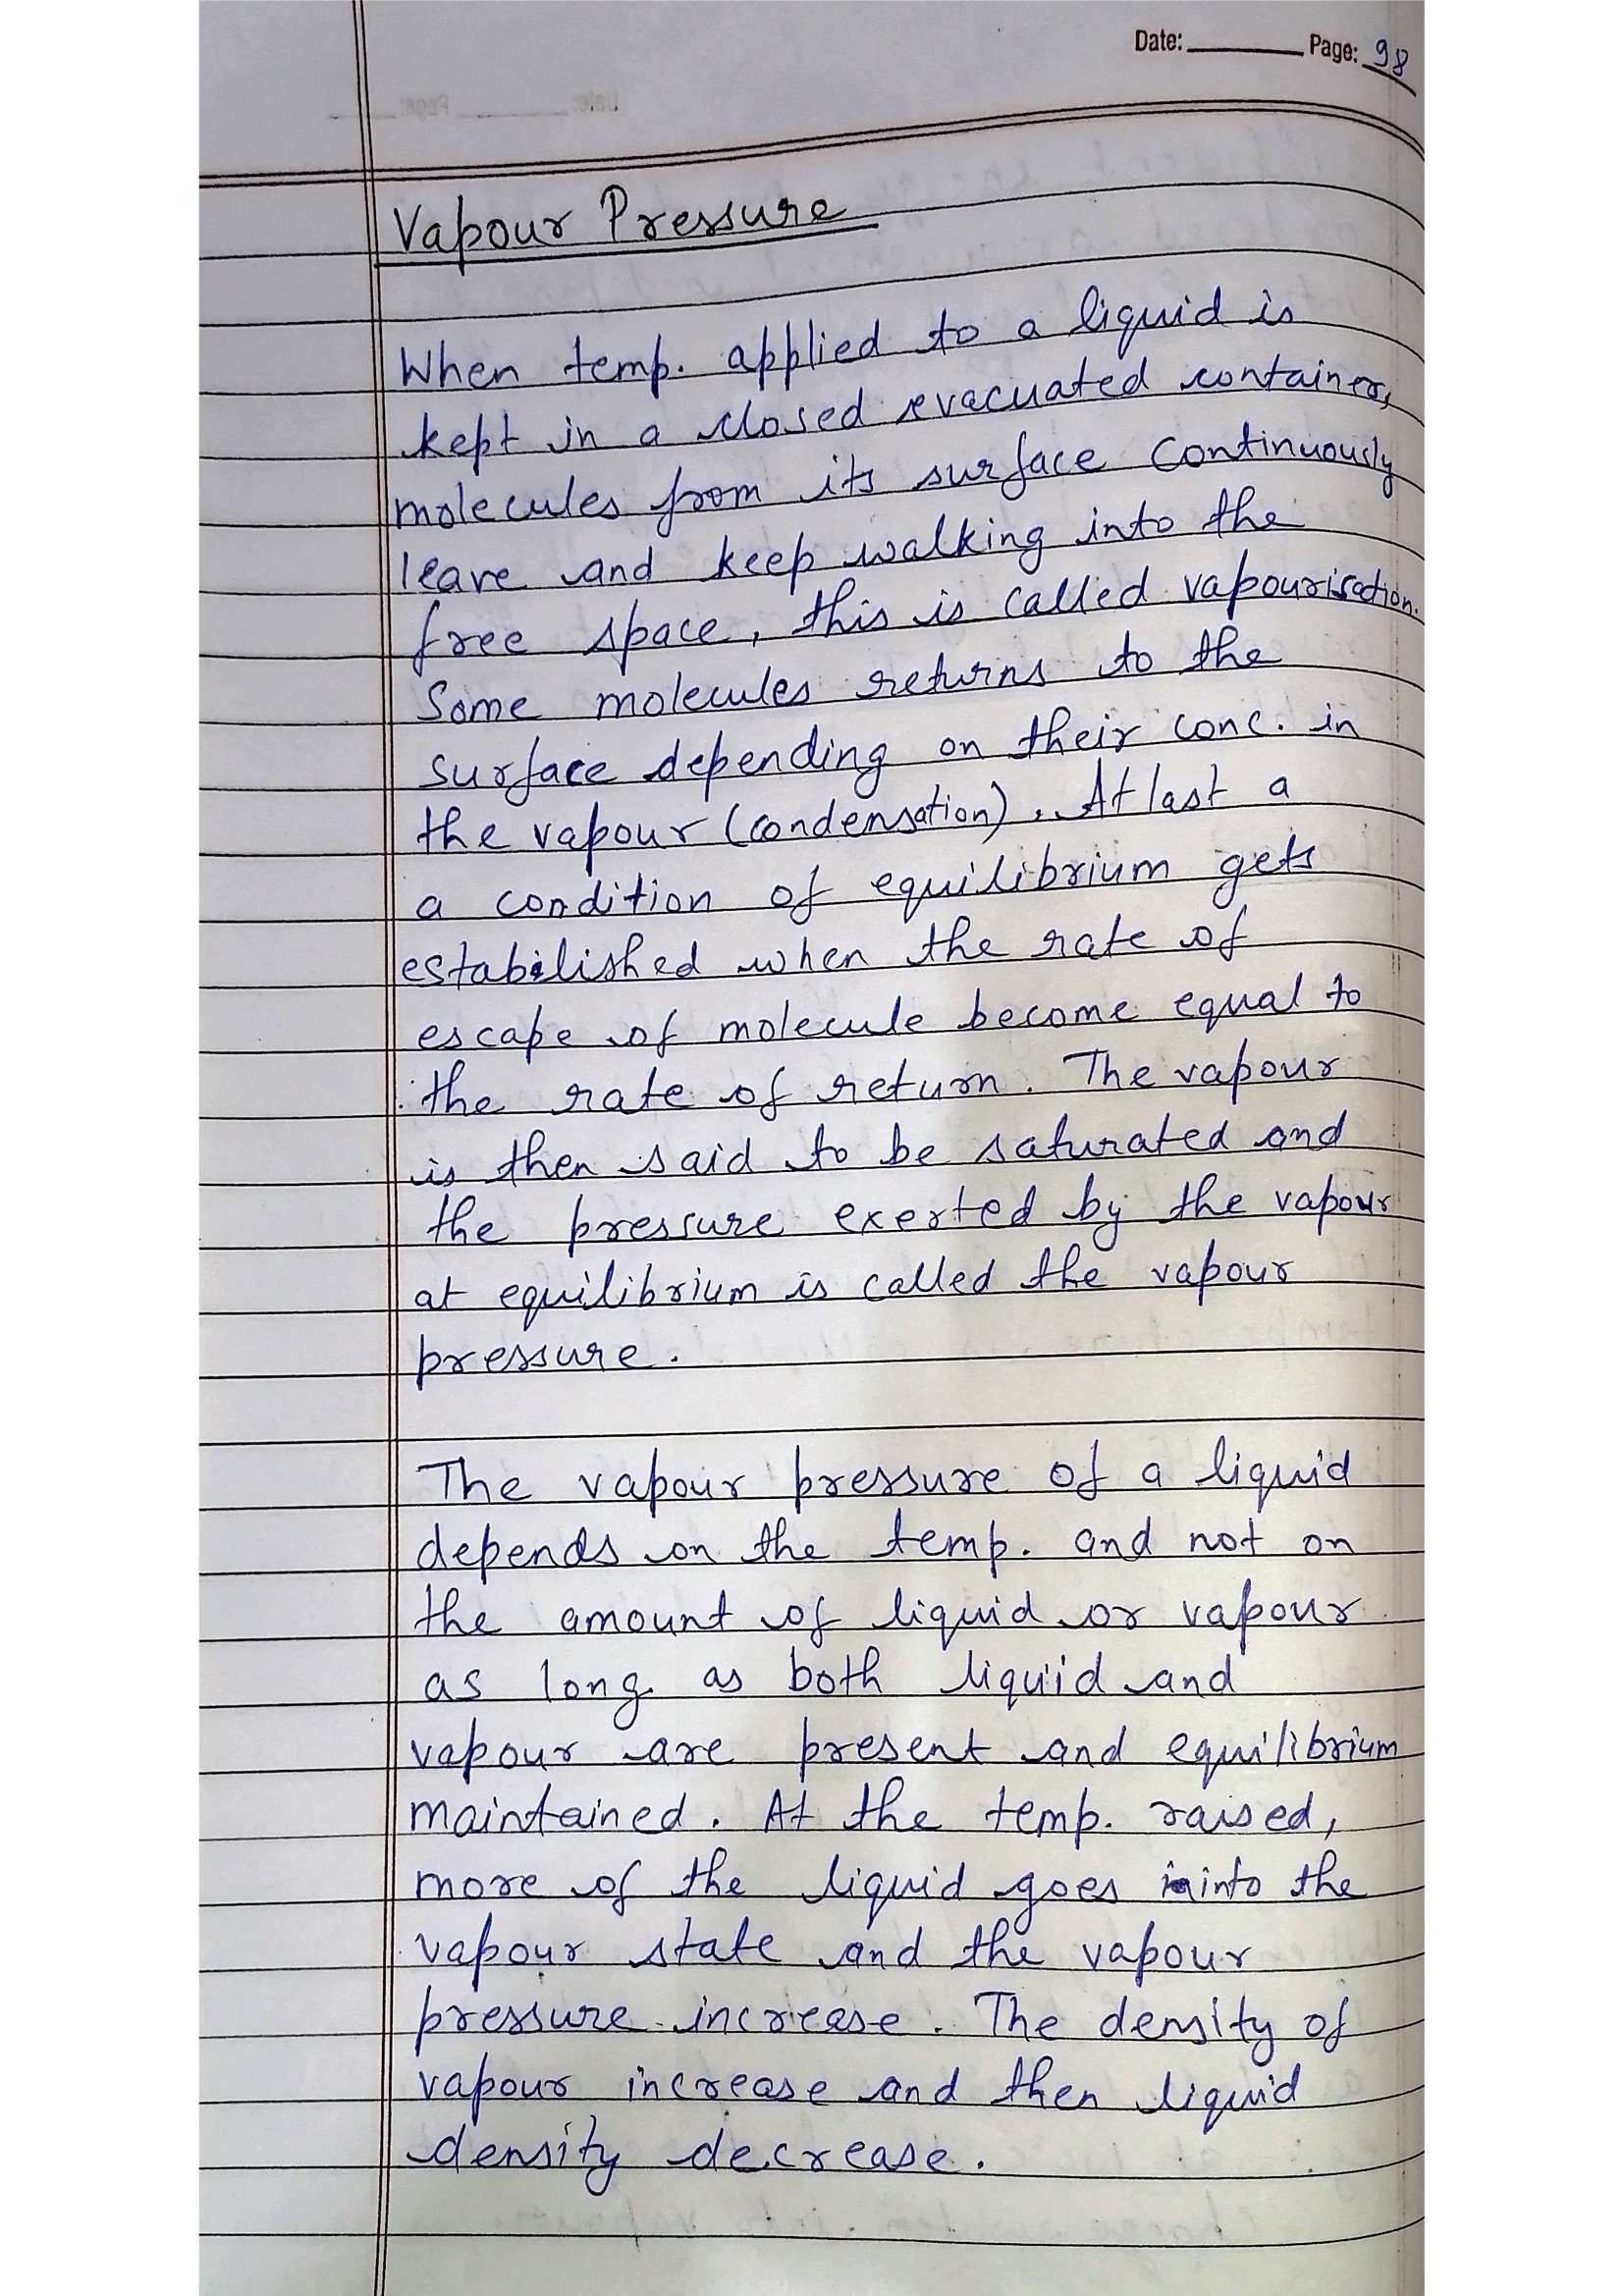 Date: Page: 98
Vapour Pressure
When temp. applied to a liquid is
kept in a closed evacuated container,
molecules from its surface continuously
leave and keep walking into the
free space, this is called vapourisation.
Some molecules returns to the
surface depending on their conc. in
the vapour (condensation). At last a
a condition of equilibrium gets
estabilished when the rate of
escape of molecule become equal to
the rate of return. The vapour
is then said to be saturated and
the pressure exerted by the vapour
at equilibrium is called the vapour
pressure.
The vapour pressure of a liquid
depends on the temp. and not on
the amount of liquid or vapour
as long as both liquid and
vapour are present and equilibrium
maintained. At the temp. raised,
more of the liquid goes into the
vapour state and the vapour
pressure increase. The density of
vapour increase and then liquid
density decrease.